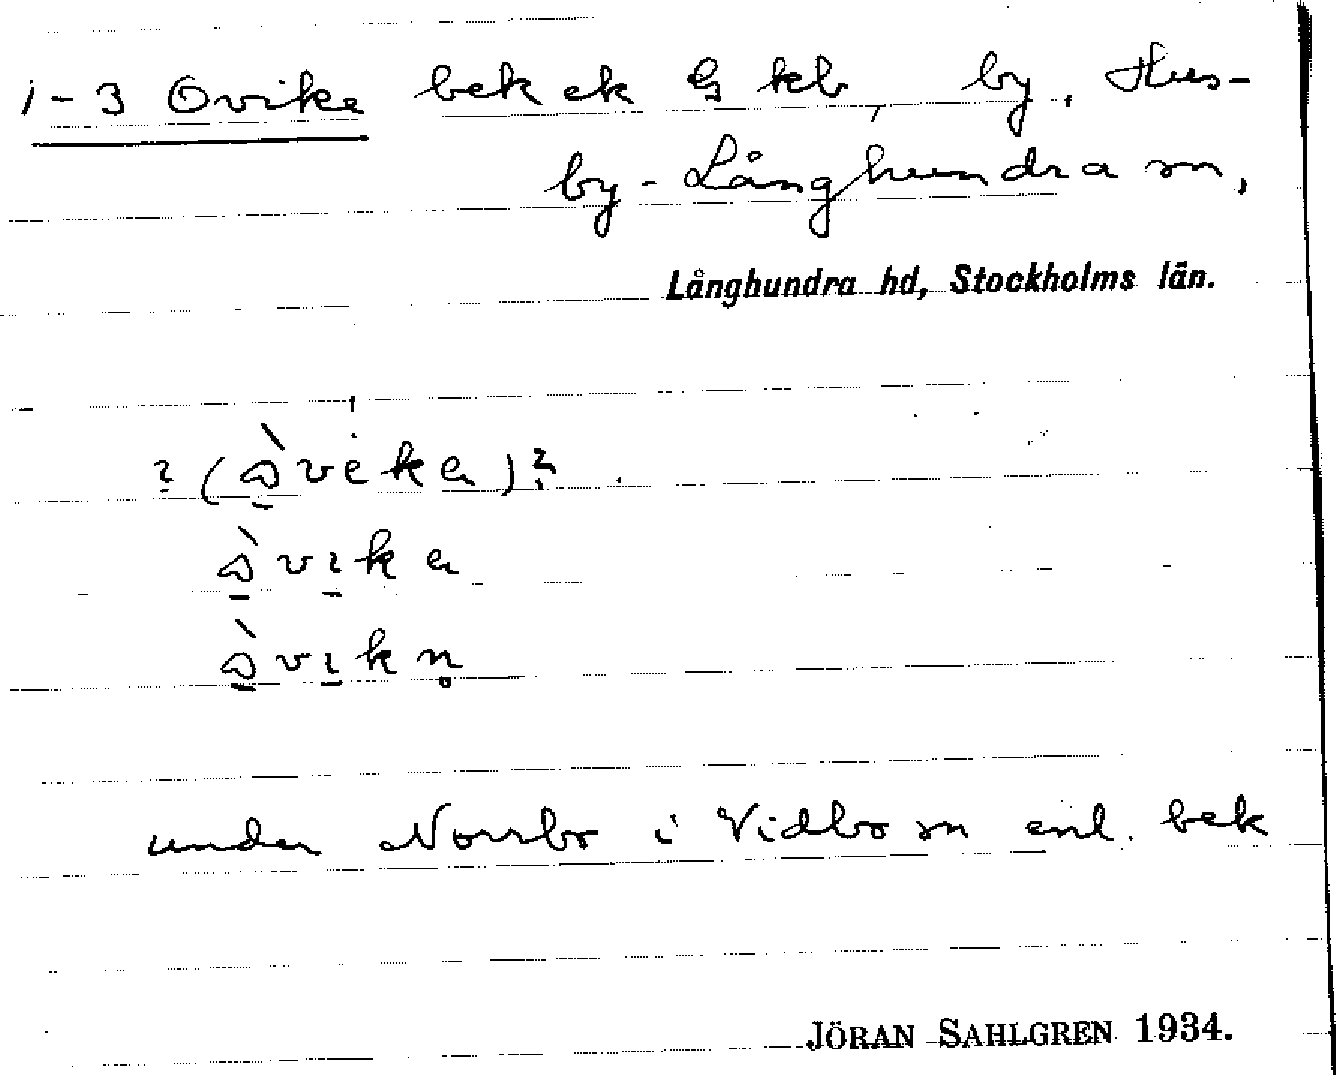 1-3 Ovike bek ek G kb, by, Hus-
by-Långhundra sn,
Långhundra hd, Stockholms län.
under Norrbo i Vidbo sn enl. bek
JÖRAN SAHLGREN 1934.